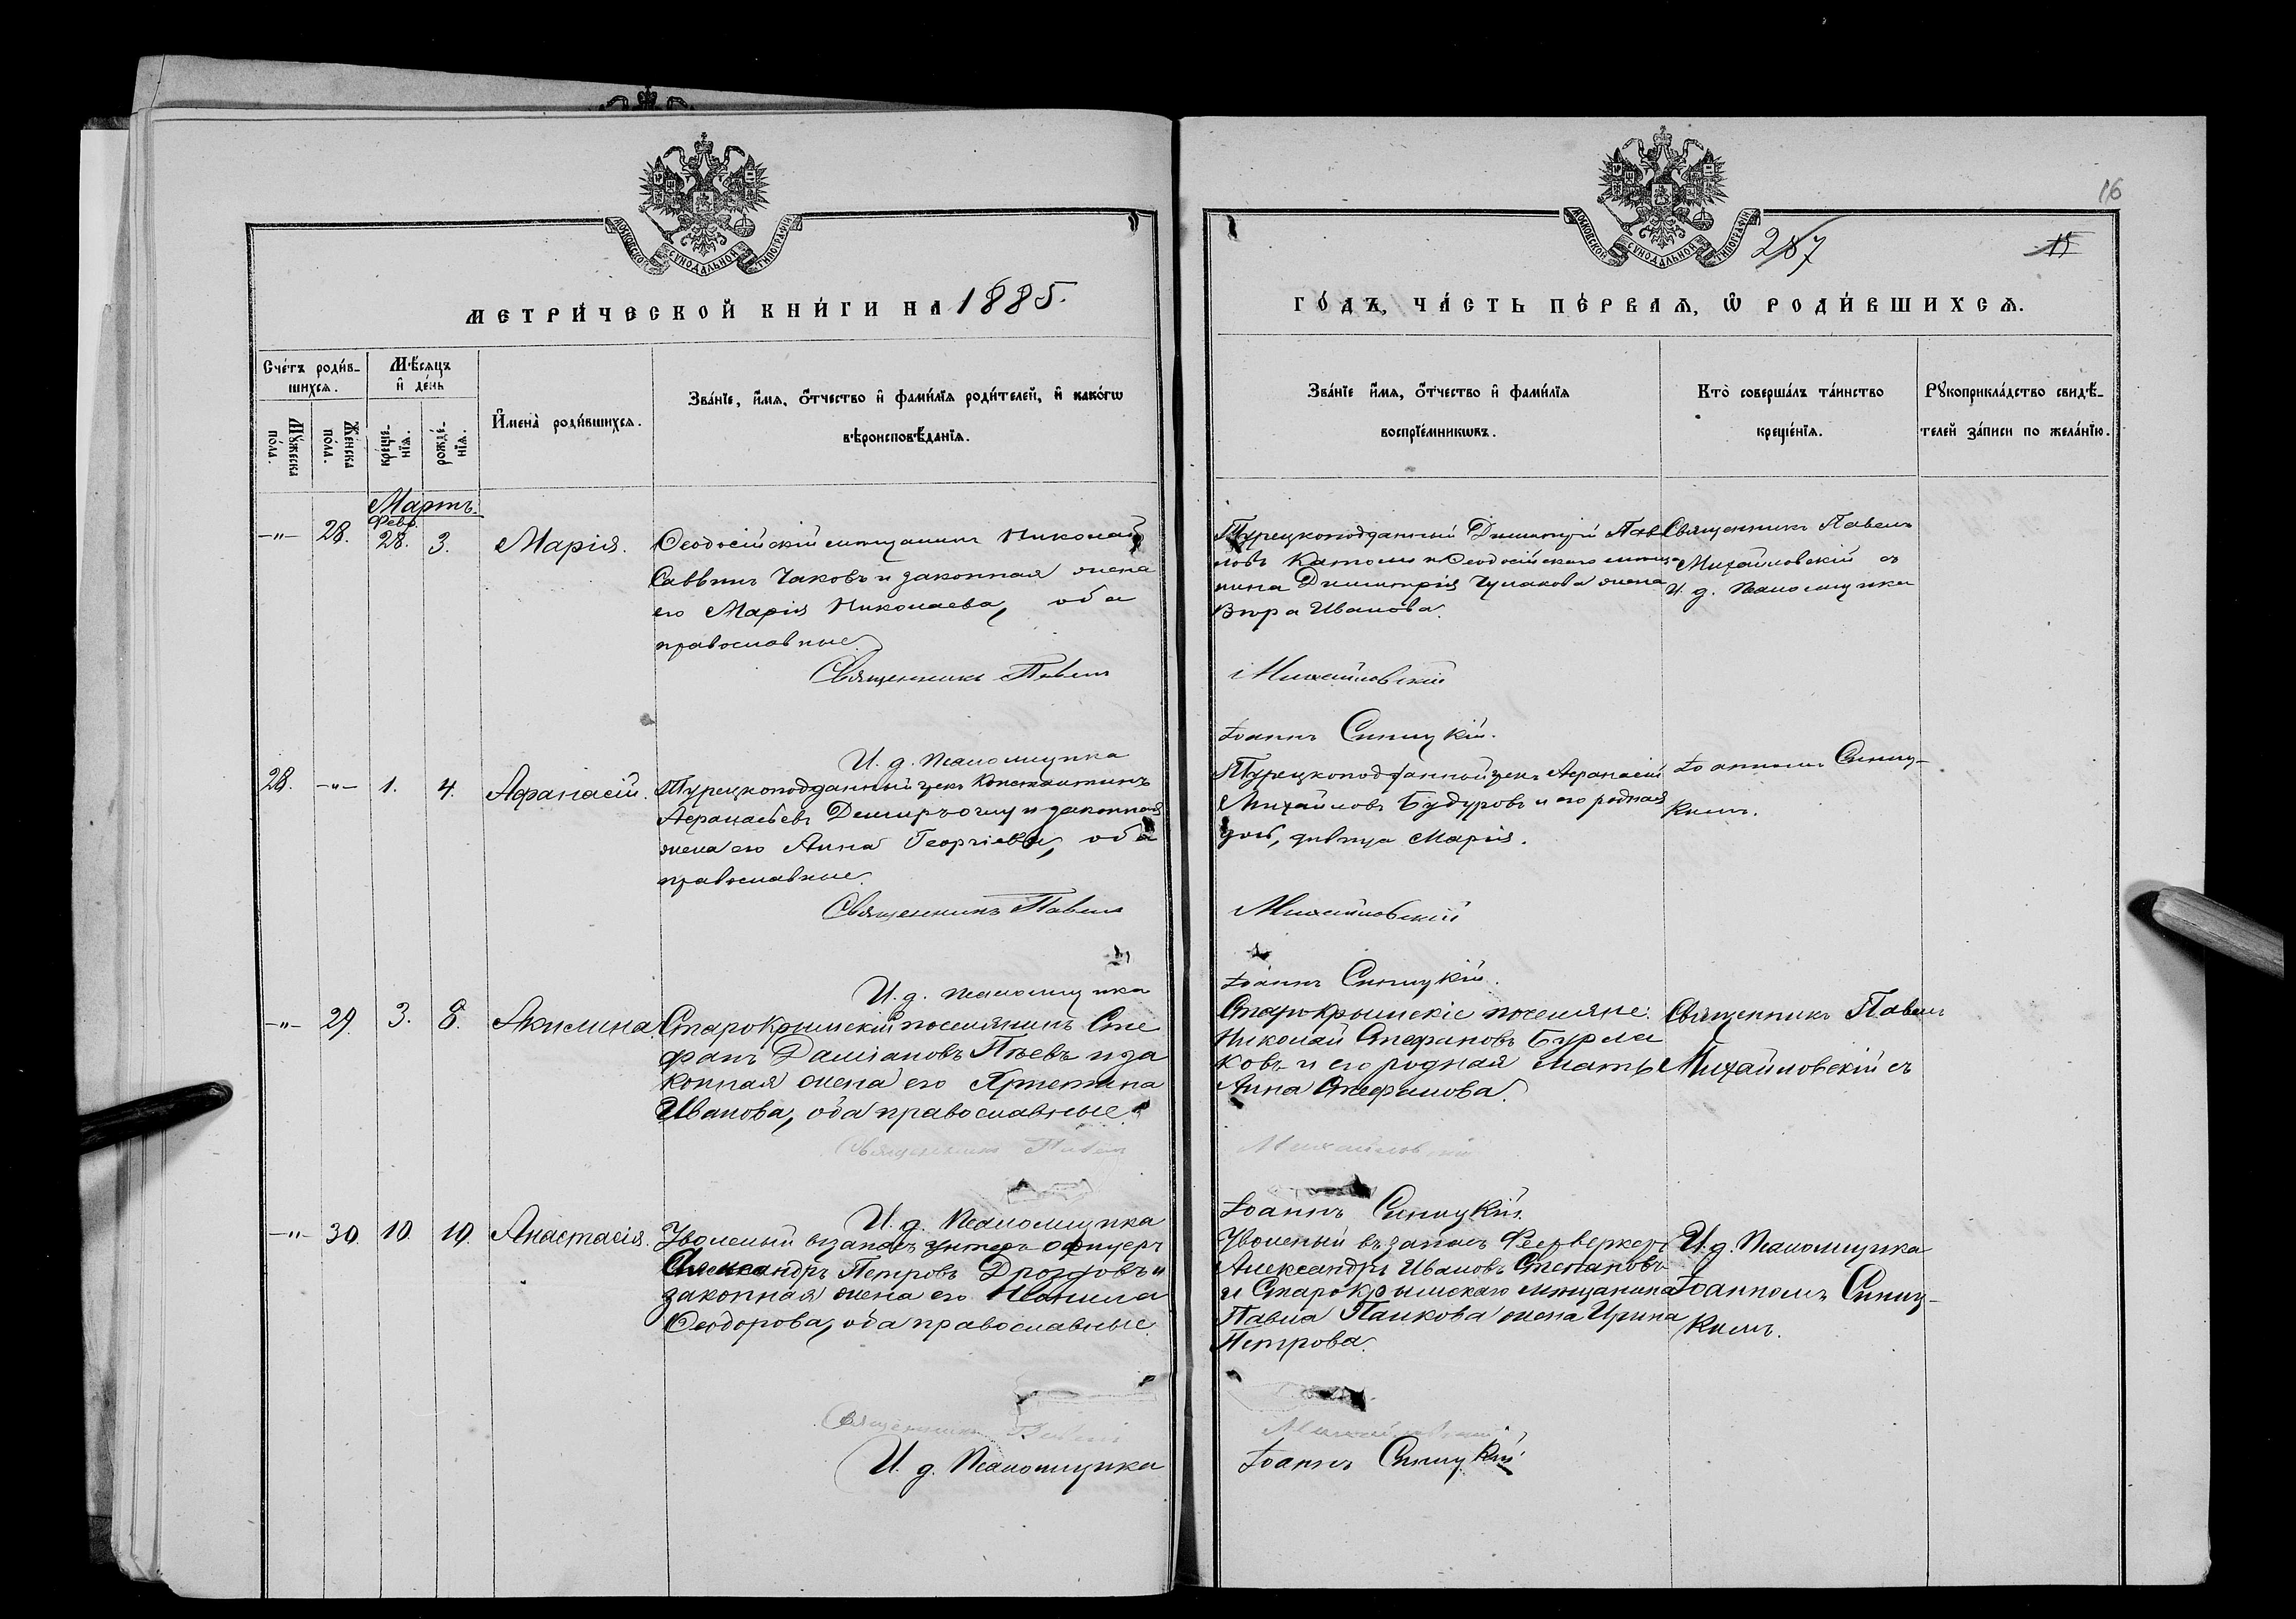 16
287
15
МОСКОВСКОЙ СѴНОДАЛЬНОЙ ТИПОГРАФІИ
МОСКОВСКОЙ СѴНОДАЛЬНОЙ ТИПОГРАФІИ
МЕТРИ́ЧЕСКОЙ КНИ́ГИ НА 1885.
ГО́ДЪ, ЧА́СТЬ ПЕ́РВАѦ, Ѽ РОДИ́ВШИХСѦ.
Сче́тъ роди́в-
шихсѧ.
Мѣ́сѧцъ
и҆ де́нь
Мꙋ́жеска по́ла.
Же́нска по́ла.
креще́-нїѧ.
рожде́-нїѧ.
И҆мена̀ роди́вшихсѧ.
Зва́нїе, и҆́мѧ, ѻ҆́тчество и҆ фами́лїѧ роди́телей, и҆ како́гѡ
вѣроисповѣ́данїѧ.
Зва́нїе и҆́мѧ, ѻ҆́тчество и҆ фами́лїѧ
воспрїе́мникѡвъ.
Кто̀ соверша́лъ та́инство
креще́нїѧ.
Рꙋкоприкла́дство свидѣ́-
телей за́писи по жела́нїю.
Мартъ.
Февр.
-"- 28. 28. 3. Марія. Ѳеодосійскій мѣщанинъ Николай
Саввинъ Чаковъ и законная жена
его Марія Николаева, оба
православные.
Священникъ Павелъ
Турецкоподданный Димитрій Пав
ловъ и Ѳеодосійскаго мѣща
нина Димитрія Чумакова жена
Вѣра Иванова.
Михайловскій
Священникъ Павелъ
Михайловскій съ
И. д. псаломщика
Іоаннъ Синицкій.
И. д. псаломщика
28. -"- 1. 4. Аѳанасій. Турецкоподданный грекъ Константинъ
Аѳанасьевъ Демиръ-оглу и законная
жена его Анна Георгіева, оба
православные.
Священникъ Павелъ
Турецкоподданный грекъ Аѳанасій
Михайловъ Будуровъ и его родная
дочь, дѣвица Марія.
Михайловскій
Іоанномъ Синиц-
кимъ.
Іоаннъ Синицкій.
И. д. псаломщика
-"- 29. 3. 8. Акилина. Старокрымскій поселянинъ Сте
фанъ Даміановъ Пѣевъ и за
конная жена его
Иванова, оба православные.
Священникъ Павелъ
Старокрымскіе поселяне:
Николай Стефановъ Бурла
ковъ и его родная мать
Анна Стефанова.
Михайловскій
Священникъ Павелъ
Михайловскій съ
Іоаннъ Синицкій.
И. д. псаломщика
-"- 30. 10. 10. Анастасія. Уволеный въ запасъ унтеръ-офицеръ
Александръ Петровъ Дроздовъ и
законная жена его Неонила
Ѳеодорова, оба православные.
Священникъ Павелъ
И. д. псаломщика
Уволеный въ запасъ Фейерверкеръ
Александръ Ивановъ Степановъ
и Старокрымскаго мѣщанина
Павла Панкова жена Ирина
Петрова.
Михайловскій
Іоаннъ Синицкій.
И. д. псаломщика
Іоанномъ Синиц-
кимъ.